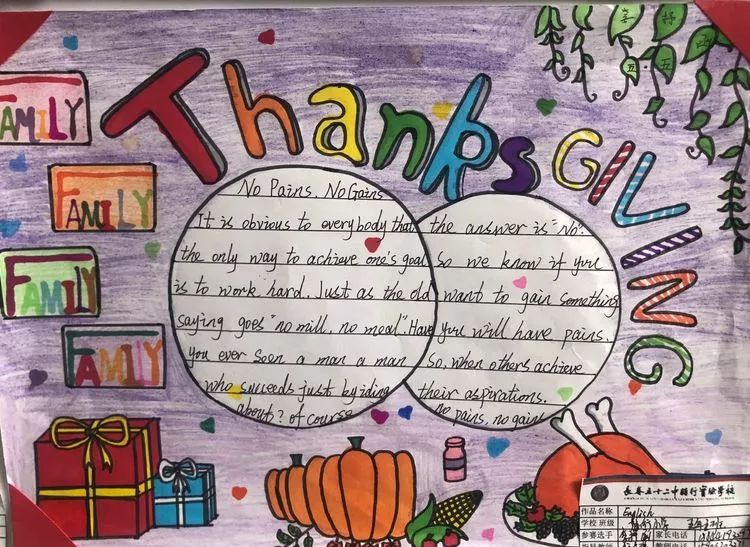 Thanksgiving
FAMILY
FAMILY
FAMILY
FAMILY
No Pains, No Gains
It is obvious to everybody that
the only way to achieve one's goal
is to work hard. Just as the old
saying goes "no mill, no meal". Have
you ever seen a man a man
who succeeds just by iding
about? of course
the answer is "No".
So we know if you
want to gain something
you will have pains.
So, when others achieve
their aspirations.
no pains, no gains
作品名称 English
学校班级
参赛选手 家长电话